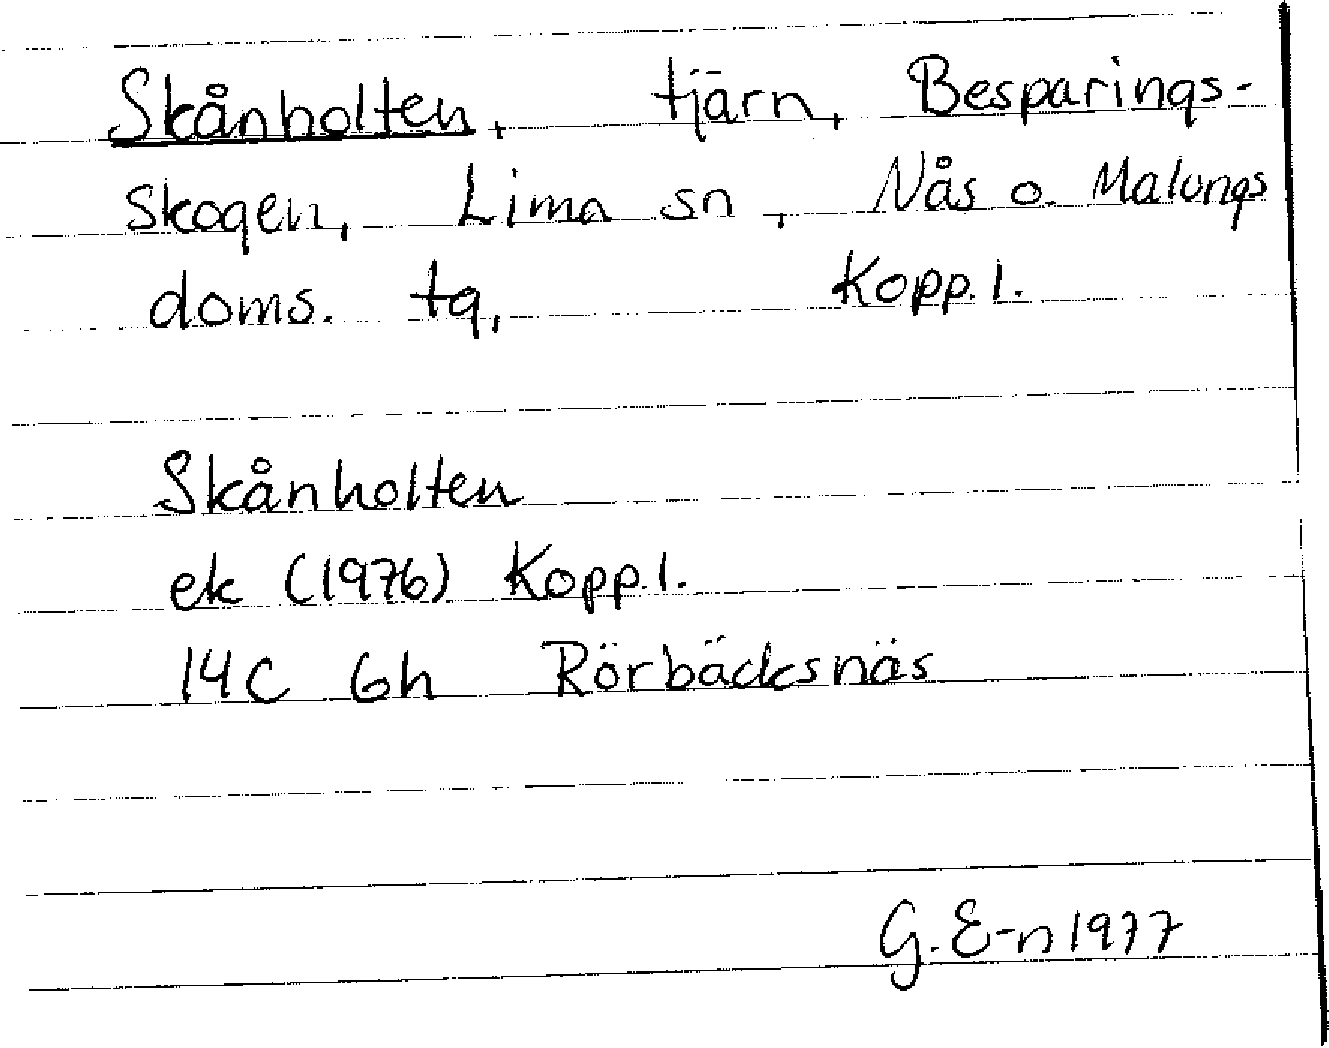 Skånholten, tjärn, Besparings-
skogen, Lima sn, Nås o. Malungs
doms. tg, Kopp. l.
Skånholten
ek (1976) Kopp. l.
14C 6h Rörbäcksnäs
G. E-n 1977